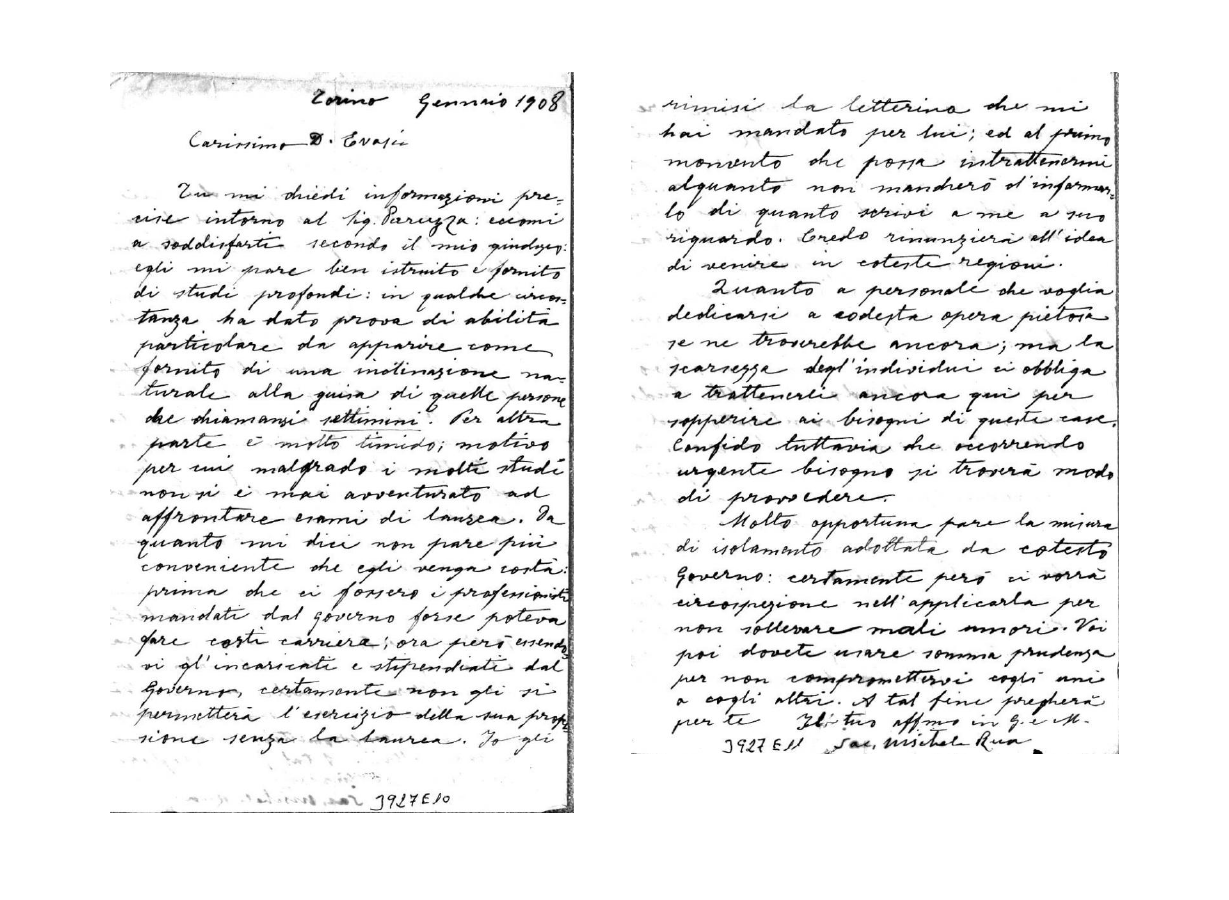 Torino Gennaio 1908
Carissimo D. Evasio
Tu mi chiedi informazioni pre=
cise intorno al Sig. Peruzza: eccomi
a soddisfarti secondo il mio giudizio:
egli mi pare ben istruito e fornito
di studi profondi: in qualche circos=
tanza ha dato prova di abilità
particolare da apparire come
fornito di una inclinazione na=
turale alla guisa di quelle persone
che chiamansi settimini. Per altra
parte è molto timido; motivo
per cui malgrado i molti studi
non si è mai avventurato ad
affrontare esami di laurea. Da
quanto mi dici non pare più
conveniente che egli venga costà:
prima che ci fossero i professionisti
mandati dal governo forse poteva
fare costì carriera; ora però essendo
vi gl'incaricati e stipendiati dal
Governo, certamente non gli si
permetterà l'esercizio della sua profes=
sione senza la laurea. Io gli
3927E10
rimisi la letterina che mi
hai mandato per lui; ed al primo
momento che possa intrattenermi
alquanto non mancherò d'informar=
lo di quanto scrivi a me a suo
riguardo. Credo rinunzierà all'idea
di venire in coteste regioni.
Quanto a personale che voglia
dedicarsi a codesta opera pietosa
se ne troverebbe ancora; ma la
scarsezza degl'individui ci obbliga
a trattenerli ancora qui per
sopperire ai bisogni di queste case.
Confido tuttavia che occorrendo
urgente bisogno si troverà modo
di provvedere.
Molto opportuna pare la misura
di isolamento adottata da cotesto
Governo: certamente però ci vorrà
circospezione nell'applicarla per
non sollevare mali umori. Voi
poi dovete usare somma prudenza
per non compromettervi cogli uni
o cogli altri. A tal fine pregherà
per te Il tuo affmo in G. e M.
3927E11 Sac. Michele Rua